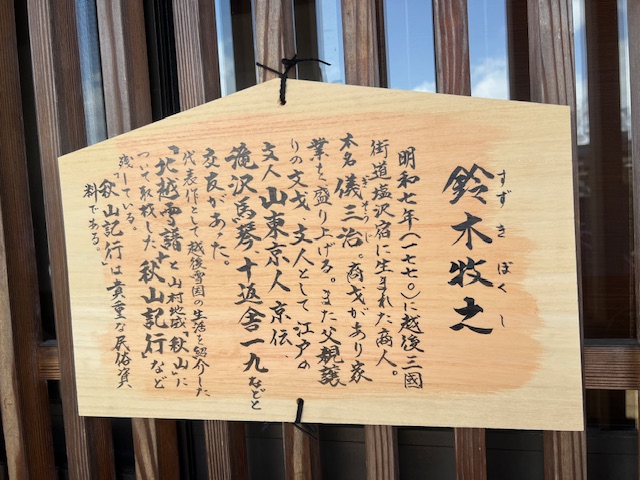 鈴木牧之
すずきぼくし
明和七年(一七七〇)に越後三國
街道塩沢宿に生まれた商人。
本名 儀三治。商才があり家
ぎそうじ
業を盛り上げる。また父親譲
りの文才、文人として江戸の
文人 山東京人 京伝、
滝沢馬琴 十返舎一九 などと
交友があった。
代表作として越後雪国の生活を紹介した
「北越雪譜」と山村地域「秋山」に
ついて取材した「秋山記行」など
残している。
秋山記行は貴重な民俗資
料である。